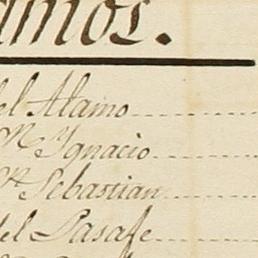 amos.
el Alamo
n Ygnacio
n Sebastian
del Pasaje